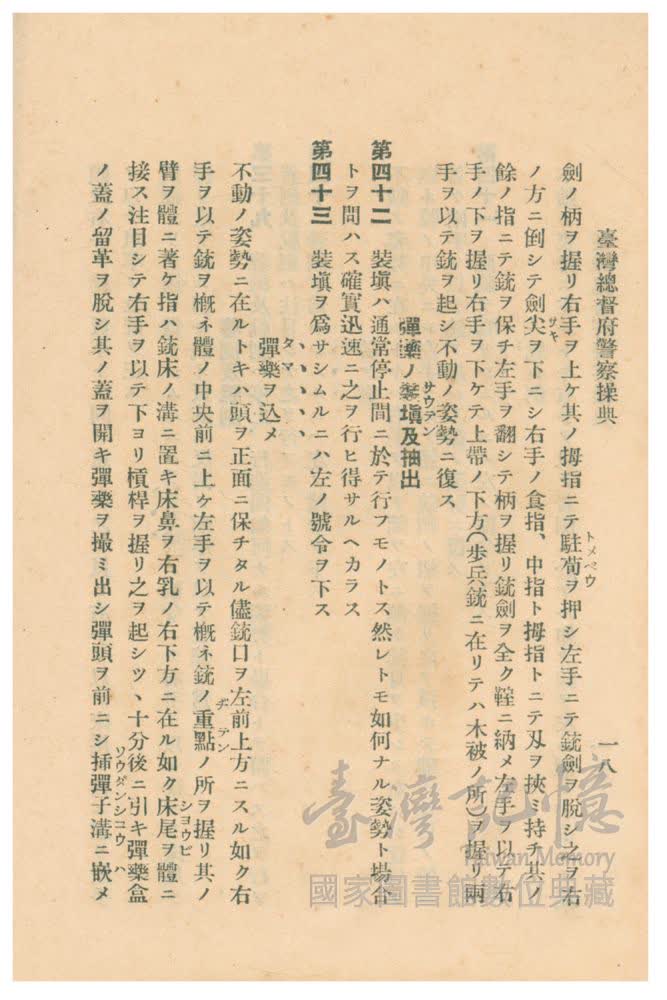 臺灣總督府警察操典
一八
劍ノ柄ヲ握リ右手ヲ上ケ其ノ拇指ニテ駐筍ヲ押シ左手ニテ銃劍ヲ脱シ之ヲ右
トメベウ
ノ方ニ倒シテ劍尖ヲ下ニシ右手ノ食指、中指ト拇指トニテ刄ヲ挾ミ持チ其ノ
サキ
餘ノ指ニテ銃ヲ保チ左手ヲ翻シテ柄ヲ握リ銃劍ヲ全ク鞘ニ納メ左手ヲ以テ右
手ノ下ヲ握リ右手ヲ下ケテ上帶ノ下方(步兵銃ニ在リテハ木被ノ所)ヲ握リ兩
手ヲ以テ銃ヲ起シ不動ノ姿勢ニ復ス
彈藥ノ裝塡及抽出
サウテン
第四十二 裝塡ハ通常停止間ニ於テ行フモノトス然レトモ如何ナル姿勢ト場合
トヲ問ハス確實迅速ニ之ヲ行ヒ得サルヘカラス
第四十三 裝塡ヲ爲サシムルニハ左ノ號令ヲ下ス
彈藥ヲ込メ
タマ
不動ノ姿勢ニ在ルトキハ頭ヲ正面ニ保チタル儘銃口ヲ左前上方ニスル如ク右
手ヲ以テ銃ヲ槪ネ體ノ中央前ニ上ケ左手ヲ以テ槪ネ銃ノ重點ノ所ヲ握リ其ノ
ヂテン
臂ヲ體ニ著ケ指ハ銃床ノ溝ニ置キ床鼻ヲ右乳ノ右下方ニ在ル如ク床尾ヲ體ニ
シヨウビ
接ス注目シテ右手ヲ以テ下ヨリ槓桿ヲ握リ之ヲ起シツヽ十分後ニ引キ彈藥盒
ノ蓋ノ留革ヲ脱シ其ノ蓋ヲ開キ彈藥ヲ撮ミ出シ彈頭ヲ前ニシ挿彈子溝ニ嵌メ
ソウダンシコウ ハ
臺灣記憶
Taiwan Memory
國家圖書館數位典藏